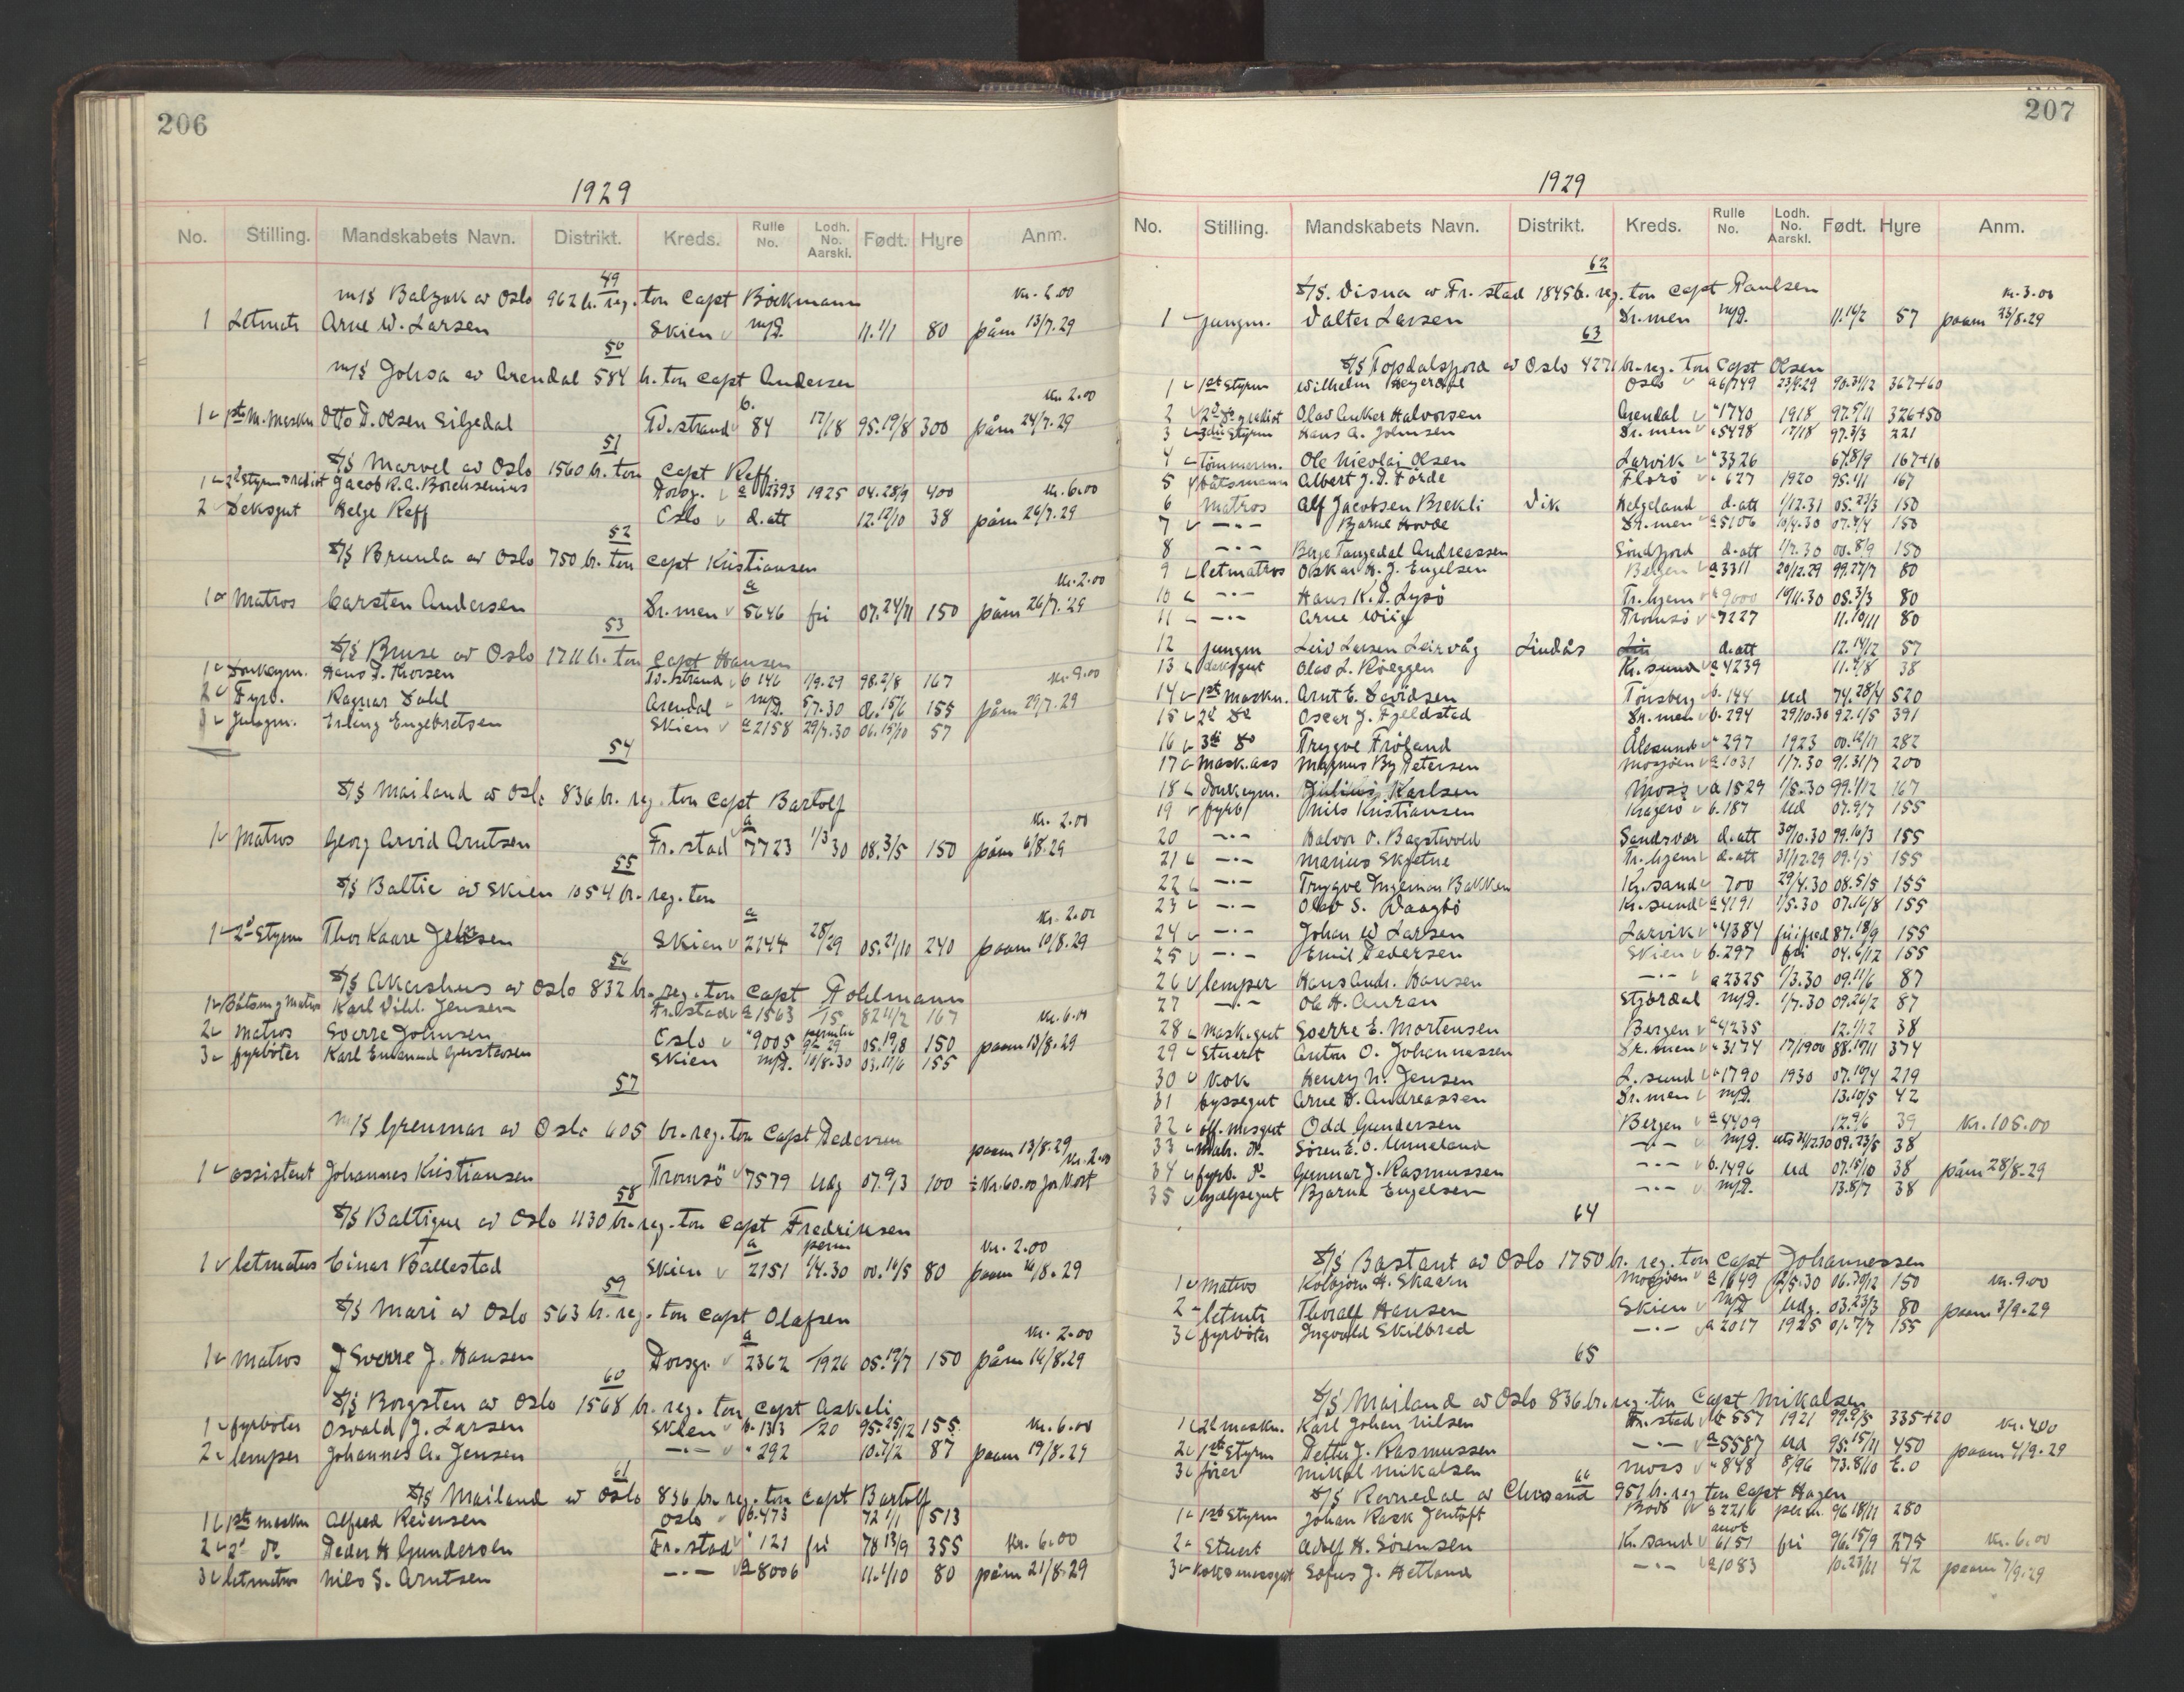 206
1929
No. Stilling. Mandskabets Navn. Distrikt. Kreds. Rulle No. Lodh. No. Aarskl. Født. Hyre Anm.
49
m/s Balzak av Oslo 962 b. reg. ton Capt Böckmann kr. 2.00
1 Letmatr Arne W. Larsen Skien m/p. 11.1/1 80 påm 13/7.29
50
m/s Johsa av Arendal 584 b. ton Capt Andersen kr. 2.00
1 1ste M. maskn Otto D. Olsen Siljedal Tv.strand b. 84 17/18 95.19/8 300 påm 24/7.29
51
S/S Marvel av Oslo 1560 b. ton Capt Reff
1 2d Styrm & radiot Jacob R. A. Borchsenius Porsgr. a 2393 1925 04.28/9 400 kr. 6.00
2 Deksgut Helge Reff Oslo d.att 12.12/10 38 påm 26/7.29
52
S/S Brunla av Oslo 750 b. ton Capt Kristiansen kr. 2.00
1 Matros Carsten Andersen Dr.men a 5646 fri 07.24/11 150 påm 26/7.29
53
S/S Bruse av Oslo 1711 b. ton Capt Hansen
1 Donkeym. Hans F. Thorsen Tv.strand b 146 1/9.29 98.2/8 167 kr. 9.00
2 Fyrb. Ragnar Dahl Arendal m/p. 5/7.30 15/6 155 påm 29/7.29
3 Jungm. Erling Engebretsen Skien a 2158 29/7.30 06.15/10 57
54
S/S Mailand av Oslo 836 br. reg. ton Capt Bartolf kr. 2.00
1 Matros Georg Arvid Arntsen Fr.stad a 7723 1/3 30 08.3/5 150 påm 6/8.29
55
S/S Baltic av Skien 1054 br. reg. ton kr. 2.00
1 2d Styrm Thor Kaare Jensen Skien a 2144 28/29 05.21/10 240 paam 10/8.29
56
S/S Akershus av Oslo 832 br. reg. ton Capt Pohlmann
1 Båtsm & Matros Karl Vilh. Jensen Fr.stad a 1563 /15 82 11/2 167 kr. 6.00
2 Matros Sverre Johnsen Oslo " 9005 05.19/8 150 paam 13/8.29
3 fyrböter Karl Emanuel Gustavsen Skien m/p. 10/8.30 03.17/6 155
57
m/s Grenmar av Oslo 605 br. reg. ton Capt Pedersen paam 13/8.29
1 assistent Johannes Kristiansen Tromsö 7579 Udg 07.9/3 100 ÷ kr. 60.00 for Kost kr. 2.00
58
S/S Baltique av Oslo 1130 br. reg. ton Capt Fredriksen kr. 2.00
1 letmatros Einar Ballestad Skien a 2151 perm 1/4.30 00.16/5 80 paam 16/8.29
59
S/S Mari av Oslo 563 br. reg. ton Capt Olafsen kr. 2.00
1 Matros J Sverre J. Hansen Porsgr. a 2362 /1926 05.17/7 150 påm 16/8.29
60
S/S Borgsten av Oslo 1568 br. reg. ton Capt Askeli
1 fyrböter Osvald J. Larsen Skien b. 133 /20 95.25/12 155 kr. 6.00
2 lemper Johannes A. Jensen —"— " 292 10.7/2 87 paam 19/8.29
61
S/S Mailand av Oslo 836 br. reg. ton Capt Bartolf
1 1ste maskn Alfred Reiersen Oslo b. 473 72 1/1 513
2 2d do Peder H Gundersen Fr.stad " 121 fri 78 13/9 355 kr. 6.00
3 letmatros Nils S. Arntsen —"— a 8006 11.1/10 80 påm 21/8.29
207
1929
No. Stilling. Mandskabets Navn. Distrikt. Kreds. Rulle No. Lodh. No. Aarskl. Født. Hyre Anm.
62
S/S. Visna av Fr.stad 1845 b. reg. ton Capt Paulsen kr. 3.00
1 Jungm. Valter Larsen Dr.men m/p. 11.14/2 57 paam 23/8.29
63
S/S Topdalsfjord av Oslo 4271 br. reg. ton Capt Olsen
1 1ste Styrm Wilhelm Heyerdal Oslo a 6749 23/9.29 90.31/12 367+60
2 2d Olav Anker Halvorsen Arendal " 1740 1918 97.5/11 326+50
3 3die Styrm Hans A. Johnsen Dr.men " 5498 17/18 97.3/3 221
4 Tömmerm. Ole Nicolai Olsen Larvik " 3326 67.8/9 167+10
5 Båtsmann Albert J. P. Förde Florö " 627 1920 95.1/1 167
6 Matros Alf Jacobsen Brekli Vik Helgeland d.att 1/12.31 05.23/3 150
7 —"— Bjarne Hovde Dr.men a 5106 10/4.30 07.4/4 150
8 —"— Berge Tangedal Andreassen Söndfjord d.att 1/7.30 00.8/9 150
9 letmatros Oskar H. J. Engelsen Bergen a 3311 20/12.29 99.27/7 80
10 —"— Hans K. P. Lysö Tr.hjem " 9000 19/11.30 08.3/3 80
11 —"— Arne Wiig Tromsö " 7227 11.10/11 80
12 jungm Leiv Larsen Leirvåg Lindås d.att 12.14/12 57
13 deksgut Olav L. Röeggen Kr.sund a 4239 11.9/8 38
14 1ste maskn. Arnt E. Davidsen Tönsberg b. 144 Ud 74.28/4 520
15 2d do Oscar J. Fjeldstad Dr.men b. 294 29/10.30 92.1/5 391
16 3die do Trygve Fröland Ålesund " 297 1923 00.12/11 282
17 Mask.ass Magnus By Petersen Mosjöen a 1031 1/7.30 91.31/7 200
18 Donkeym. Julius Karlsen Moss a 1529 1/8.30 99.1/12 167
19 fyrb Nils Kristiansen Kragerö b. 187 Ud 07.9/7 155
20 —"— Halvor O. Bagstevold Sandsvær d.att 30/10.30 99.10/3 155
21 —"— Marius Skjetne Tr.hjem d.att 31/12.29 09.1/5 155
22 —"— Trygve Ingeman Bakken Kr.sand 700 29/4.30 08.5/5 155
23 —"— Olav S. Vaagbö Kr.sund a 4191 1/5.30 07.16/8 155
24 —"— Johan W Larsen Larvik " 4384 87.18/9 155
25 —"— Emil Pedersen Skien b. 297 fri 04.6/12 155
26 lemper Hans Andr. Hansen —"— a 2325 1/3.30 09.11/6 87
27 —"— Ole H. Auran Stjördal m/p. 1/7.30 09.26/2 87
28 Mask.gut Sverre E. Mortensen Bergen a 4235 12.1/12 38
29 Stuert Anton O. Johannessen Dr.men " 3174 17/1906 88.19/11 374
30 Kok Henry N. Jensen L.sund " 1790 1930 07.10/4 219
31 byssegut Arne H. Andreassen Dr.men m/p. 13.10/5 42
32 off. mesgut Odd Gundersen Bergen a 4409 12.9/6 39 Kr. 105.00
33 Mask. do Sören E. O. Unneland —"— m/p. uts 31/12.30 09.23/5 38
34 fyrb. do Gunnar J. Rasmussen —"— b. 1496 Ud 07.15/10 38 påm 28/8.29
35 hjelpegut Bjarne Engelsen —"— m/p. 13.8/7 38
64
S/S Bastant av Oslo 1750 b. reg. ton Capt Johannessen
1 Matros Kolbjörn H. Skaarn Mosjöen a 1649 2/5.30 06.30/12 150 kr. 9.00
2 letmatr Thoralf Hansen Skien m/p Udg. 03.23/3 80 paam 3/9.29
3 fyrböter Ingvald Skilbred —"— a 2017 1925 01.7/7 155
65
S/S Mailand av Oslo 836 br. reg. ton Capt Mikalsen
1 2d maskn. Karl Johan Nilsen Fr.stad b 557 1921 99.9/5 335+20 kr. 4.00
2 1ste Styrm Petter J. Rasmussen —"— a 5587 Ud 95.15/11 450 paam 4/9.29
3 förer Mikal Mikalsen Moss " 848 8/96 73.8/10 E.O
66
S/S Ravnedal av Chrsand 951 b. reg ton Capt Hagen
1 1ste Styrm Johan Rask Jentoft Bodö a 2216 perm. 96 18/11 280
2 Stuert Adolf H. Sörensen Kr.sand 6151 fri 96.15/9 275 kr. 6.00
3 Kok & messegut Sofus J. Hetland —"— a 1083 10.23/11 42 paam 7/9.29